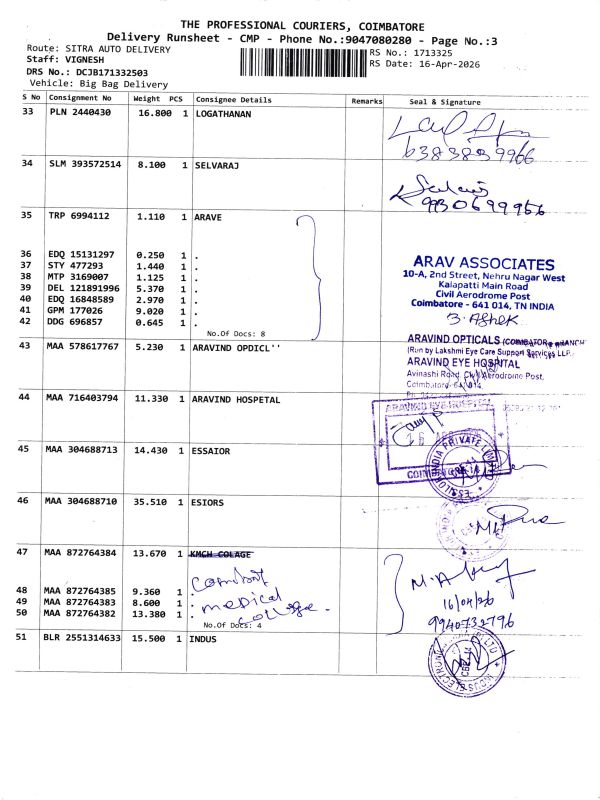 THE PROFESSIONAL COURIERS, COIMBATORE
Delivery Runsheet - CMP - Phone No.:9047080280 - Page No.:3
Route: SITRA AUTO DELIVERY
RS No.: 1713325
Staff: VIGNESH
RS Date: 16-Apr-2026
DRS No.: DCJB171332503
Vehicle: Big Bag Delivery
S No Consignment No Weight PCS Consignee Details Remarks Seal & Signature
33 PLN 2440430 16.800 1 LOGATHANAN
6383899966
34 SLM 393572514 8.100 1 SELVARAJ
9930699956
35 TRP 6994112 1.110 1 ARAVE
36 EDQ 15131297 0.250 1 .
37 STY 477293 1.440 1 .
38 MTP 3169007 1.125 1 .
39 DEL 121891996 5.370 1 .
40 EDQ 16848589 2.970 1 .
41 GPM 177026 9.020 1 .
42 DDG 696857 0.645 1 .
No.Of Docs: 8
ARAV ASSOCIATES
10-A, 2nd Street, Nehru Nagar West
Kalapatti Main Road
Civil Aerodrome Post
Coimbatore - 641 014, TN INDIA
B. Ashok
43 MAA 578617767 5.230 1 ARAVIND OPDICL''
ARAVIND OPTICALS (COIMBATORE BRANCH
(Run by Lakshmi Eye Care Support Services LLP.
ARAVIND EYE HOSPITAL
Avinashi Road, Civil Aerodrome Post,
Coimbatore- 641 014
44 MAA 716403794 11.330 1 ARAVIND HOSPETAL
ARAVIND EYE HOSPITAL
45 MAA 304688713 14.430 1 ESSAIOR
46 MAA 304688710 35.510 1 ESIORS
47 MAA 872764384 13.670 1 KMCH COLAGE
48 MAA 872764385 9.360 1 .
49 MAA 872764383 8.600 1 .
50 MAA 872764382 13.380 1 .
medical
college
No.Of Docs: 4
16/04/26
9940732796
51 BLR 2551314633 15.500 1 INDUS